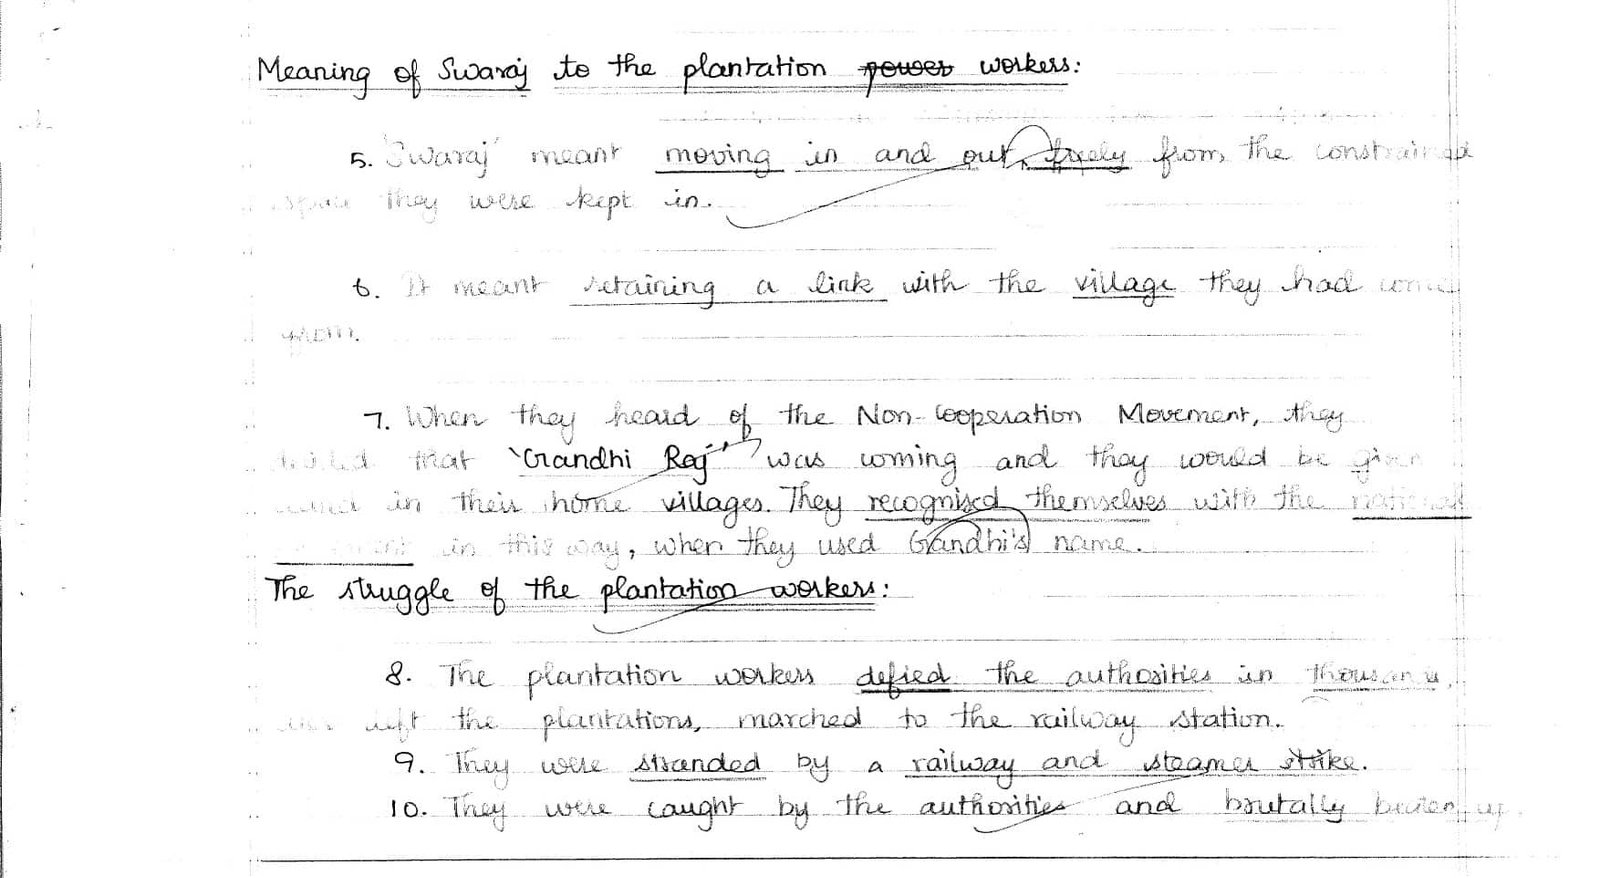 Meaning of Swaraj to the plantation power workers:
5. 'Swaraj' meant moving in and out, freely from the constrained
space they were kept in.
6. It meant retaining a link with the village they had come
from.
7. When they heard of the Non-Cooperation Movement, they
that 'Gandhi Raj' was coming and they would be given
in their home villages. They recognised themselves with the national
in this way, when they used Gandhi's name.
The struggle of the plantation workers:
8. The plantation workers defied the authorities in thousands,
left the plantations, marched to the railway station.
9. They were stranded by a railway and steamer strike.
10. They were caught by the authorities and brutally beaten up.